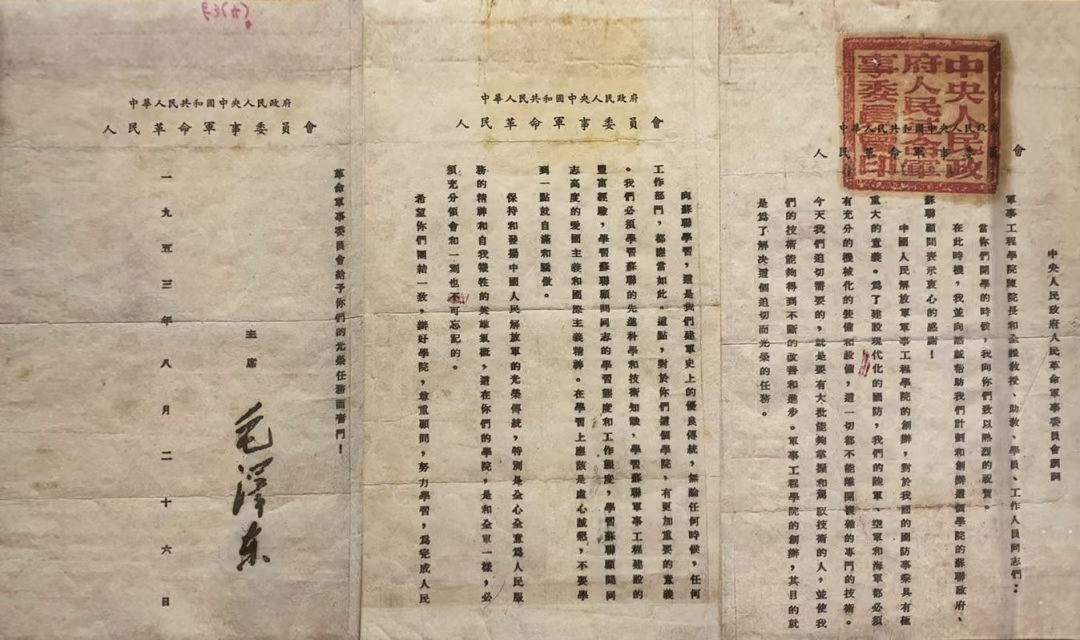 中華人民共和國中央人民政府
人民革命軍事委員會
中央人民政府人民革命軍事委員會印
中央人民政府人民革命軍事委員會訓詞
軍事工程學院陳院長和全體教授、助教、學員、工作人員同志們：
當你們開學的時候，我向你們致以熱烈的祝賀。
在此時機，我並向熱誠幫助我們計劃和創辦這個學院的蘇聯政府、
蘇聯顧問表示衷心的感謝！
中國人民解放軍軍事工程學院的創辦，對於我國的國防事業具有極
重大的意義。爲了建設現代化的國防，我們的陸軍、空軍和海軍都必須
有充分的機械化的裝備和設備，這一切都不能離開複雜的專門的技術。
今天我們迫切需要的，就是要有大批能夠掌握和駕馭技術的人，並使我
們的技術能夠得到不斷的改善和進步。軍事工程學院的創辦，其目的就
是爲了解決這個迫切而光榮的任務。
中華人民共和國中央人民政府
人民革命軍事委員會
向蘇聯學習，這是我們建軍史上的優良傳統，無論任何時候，任何
工作部門，都應當如此。這點，對於你們這個學院，有更加重要的意義
。我們必須學習蘇聯的先進科學和技術知識，學習蘇聯軍事工程建設的
豐富經驗，學習蘇聯顧問同志的學習態度和工作態度，學習蘇聯顧問同
志高度的愛國主義和國際主義精神。在學習上應該是虛心誠懇，不要學
到一點就自滿和驕傲。
保持和發揚中國人民解放軍的光榮傳統，特別是全心全意爲人民服
務的精神和自我犧牲的英雄氣概，這在你們的學院，是和全軍一樣，必
須充分領會和一刻也不可忘記的。
希望你們團結一致，辦好學院，尊重顧問，努力學習，爲完成人民
中華人民共和國中央人民政府
人民革命軍事委員會
革命軍事委員會給予你們的光榮任務而奮鬥！
主席
毛澤东
一九五三年八月二十六日